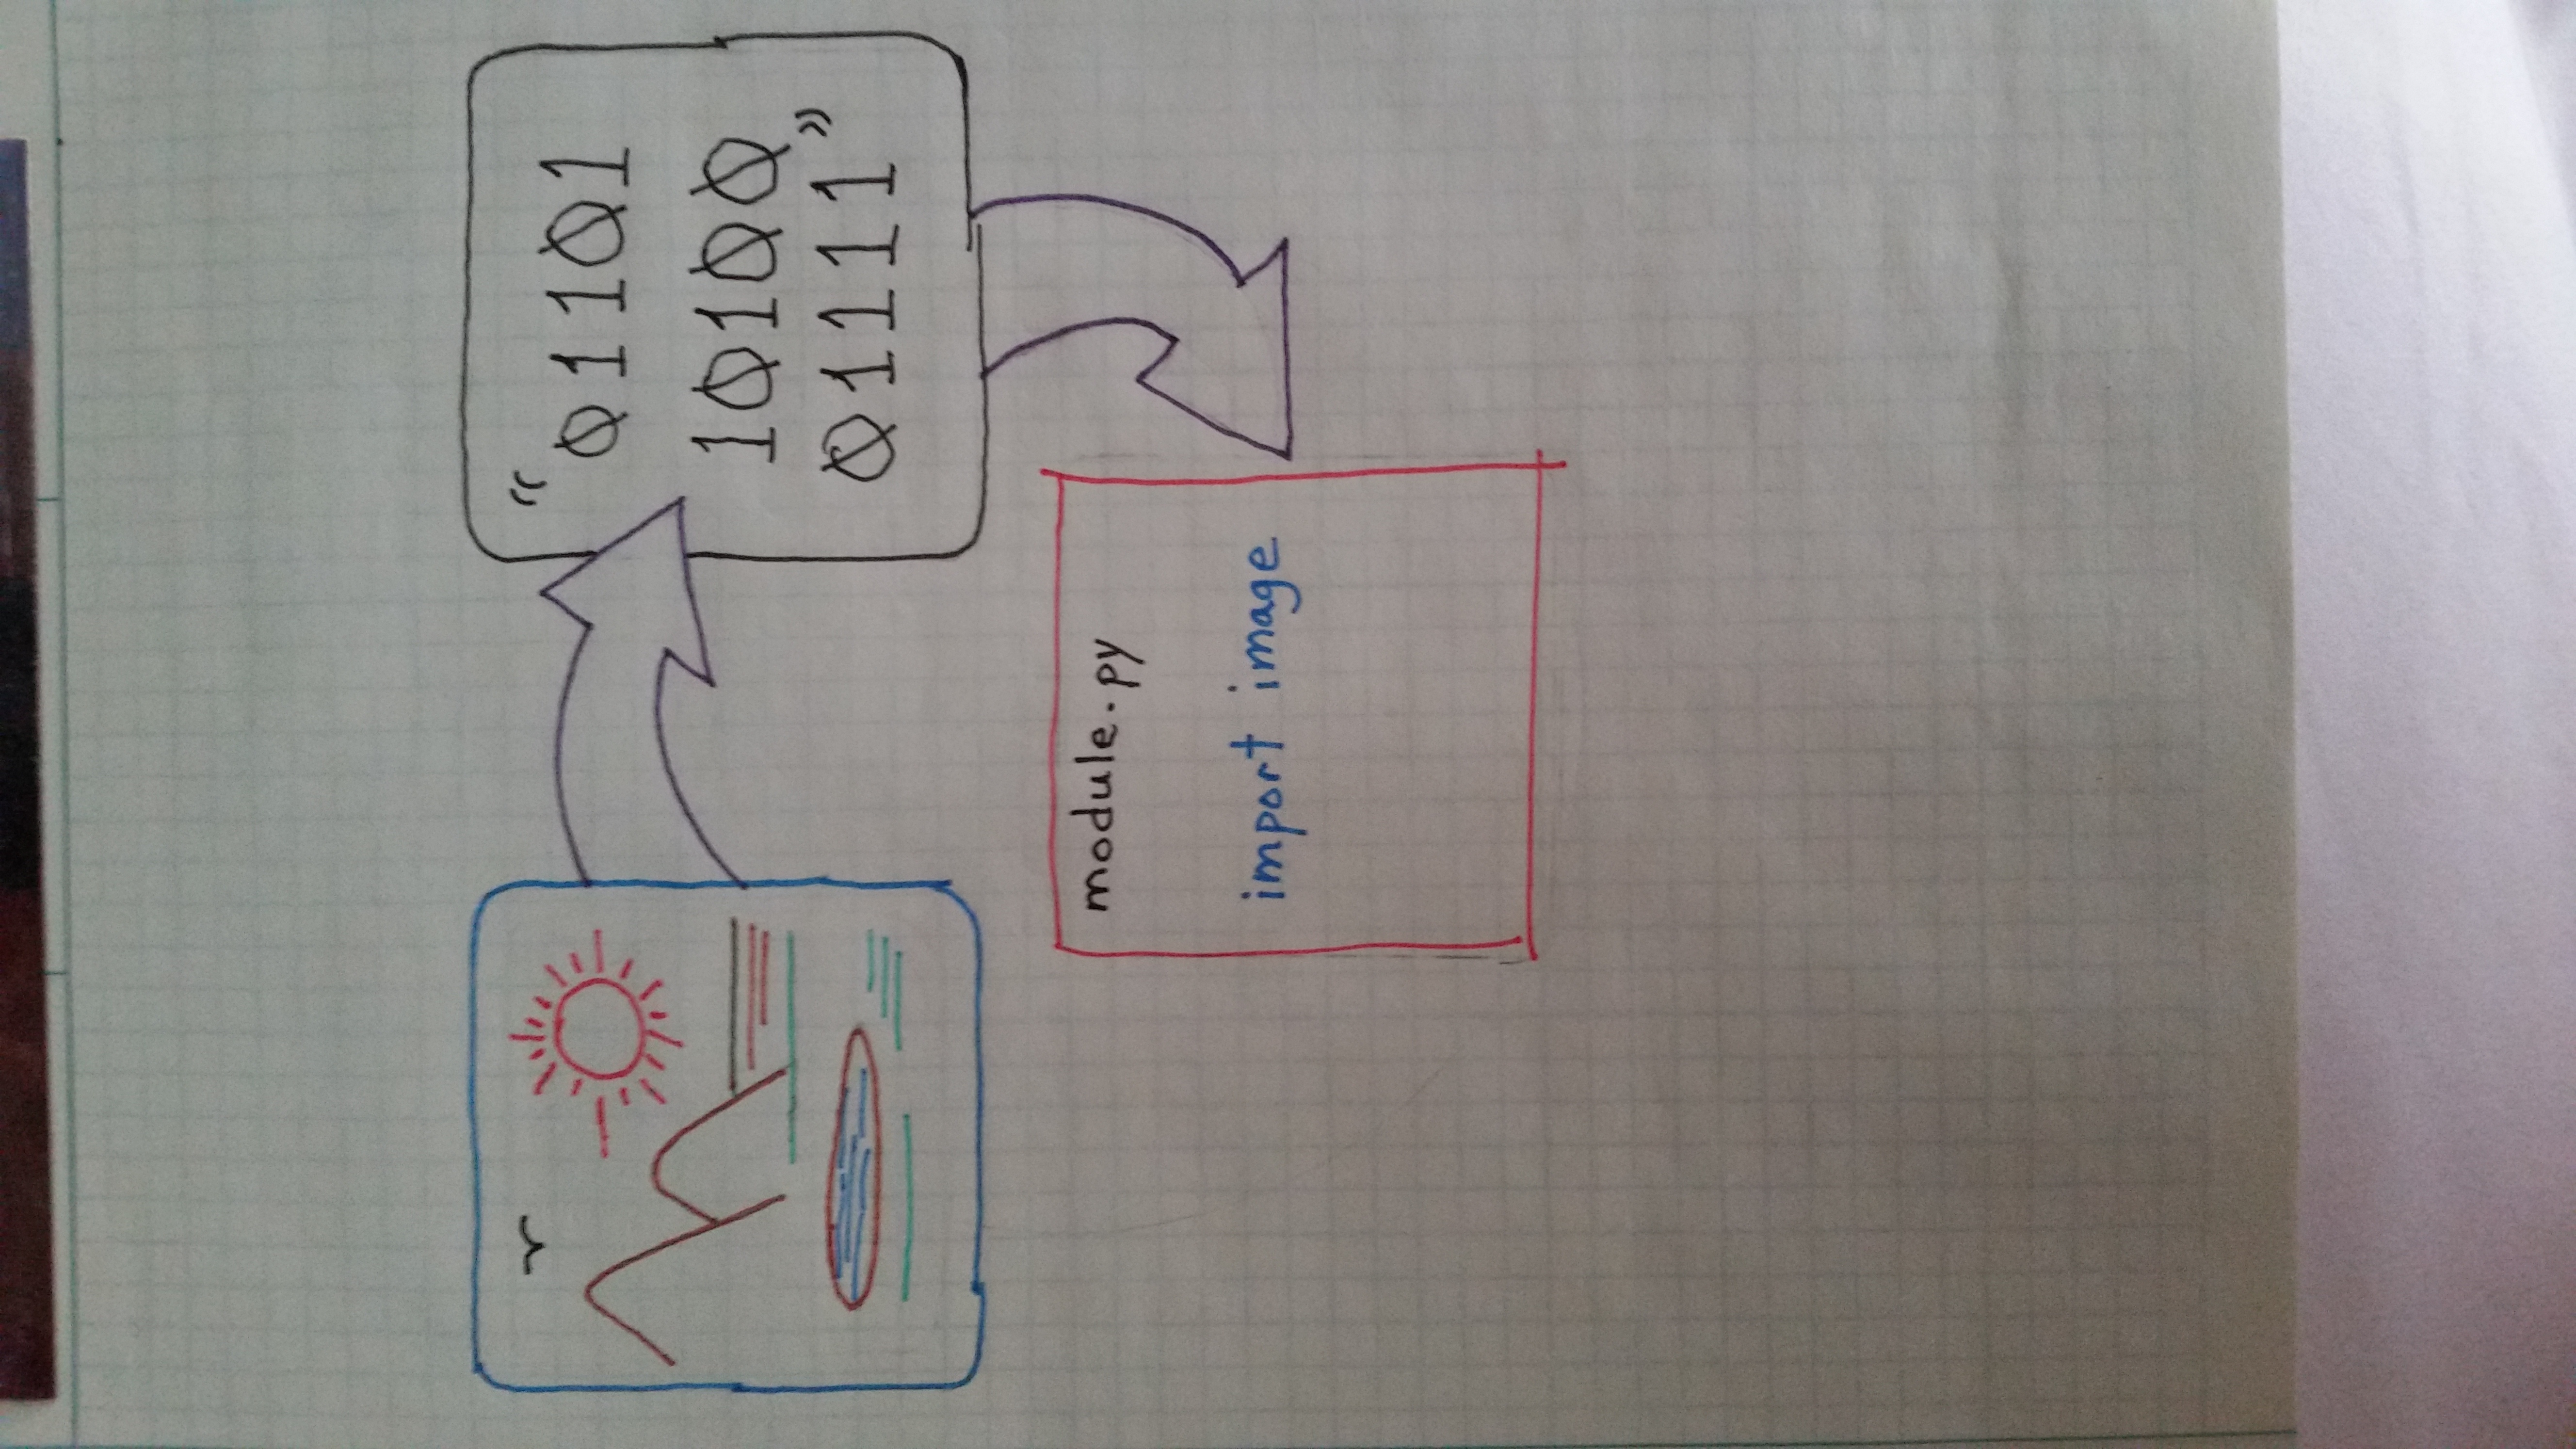 “01101
10100
01111”
module.py
import image